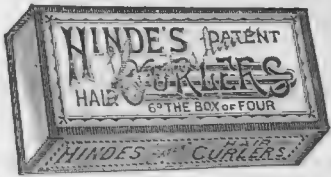 HINDE'S PATENT
HAIR CURLERS
6D THE BOX OF FOUR
HINDES HAIR CURLERS